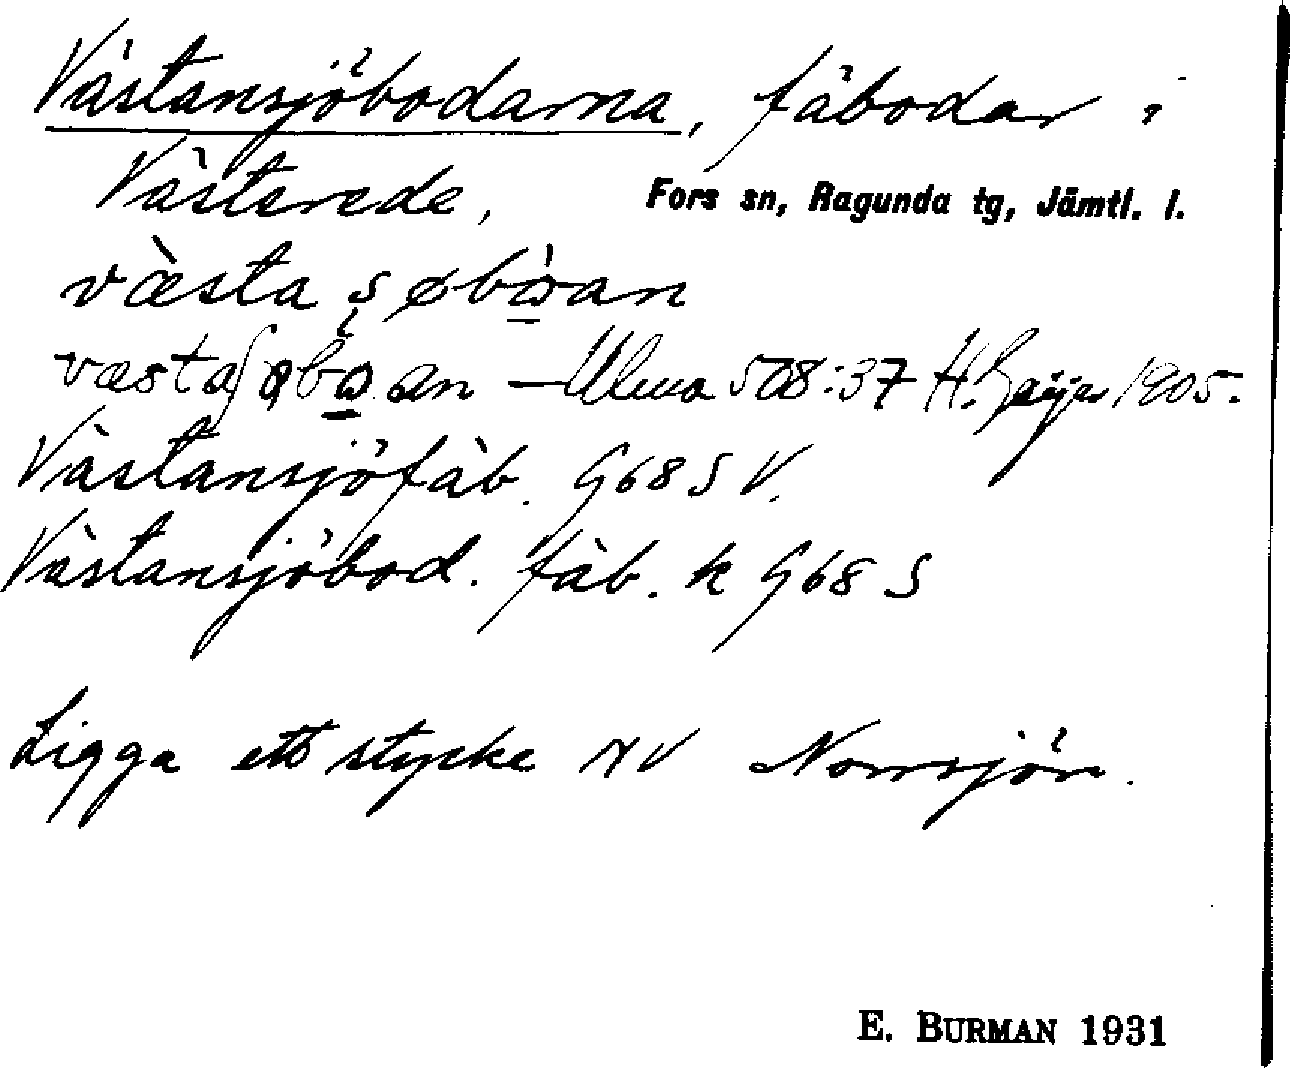 Västansjöbodarna, fäbodar i
Västerede, Fors sn, Ragunda tg, Jämtl. l.
væsta
508:37 H. Geijer 1905.
Västansjöfäb. G68 S V.
Västansjöbod. fäb. k G68 S
Ligga ett stycke NV Norrsjön.
E. BURMAN 1931